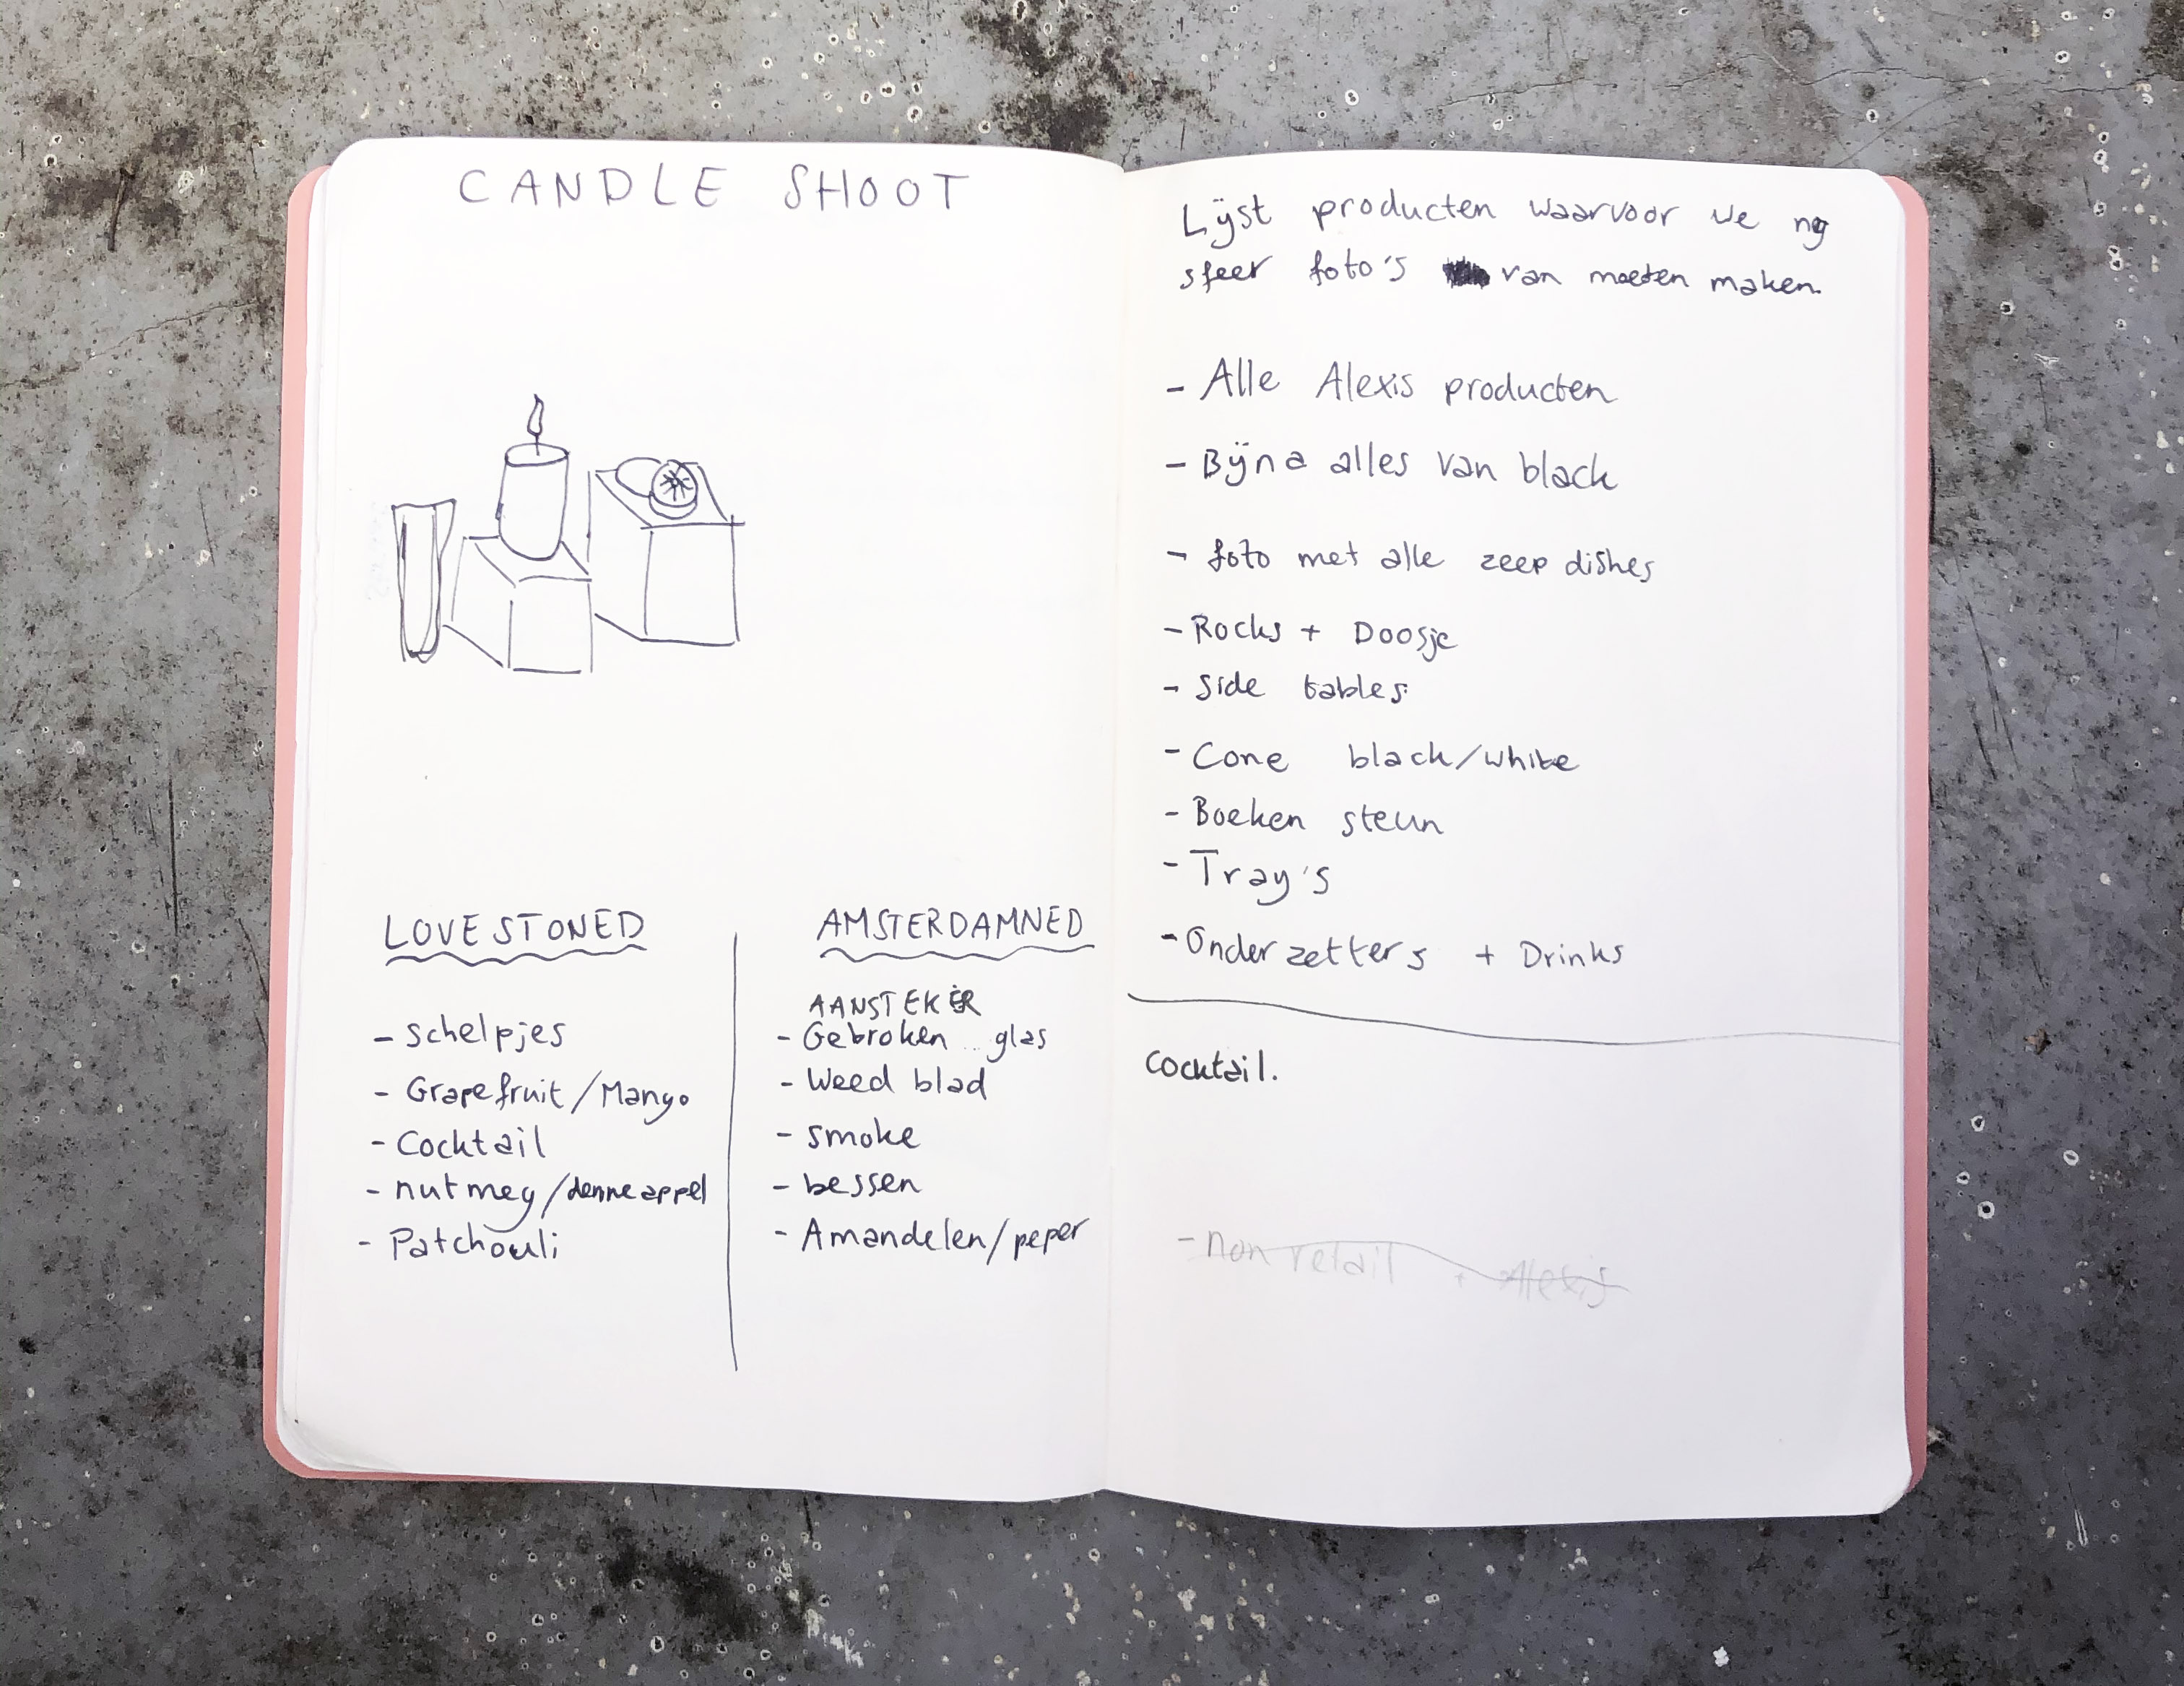 CANDLE SHOOT
LOVESTONED
- Schelpjes
- Grapefruit/Mango
- Cocktail
- nutmeg/denneappel
- Patchouli
AMSTERDAMNED
AANSTEKER
- Gebroken glas
- Weed blad
- smoke
- bessen
- Amandelen/peper
Lijst producten waarvoor we nog
sfeer foto's van moeten maken.
- Alle Alexis producten
- Bijna alles van black
- foto met alle zeep dishes
- Rocks + Doosje
- Side tables
- Cone black/white
- Boeken steun
- Tray's
- Onderzetters + Drinks
Cocktail.
- non retail + Alexis